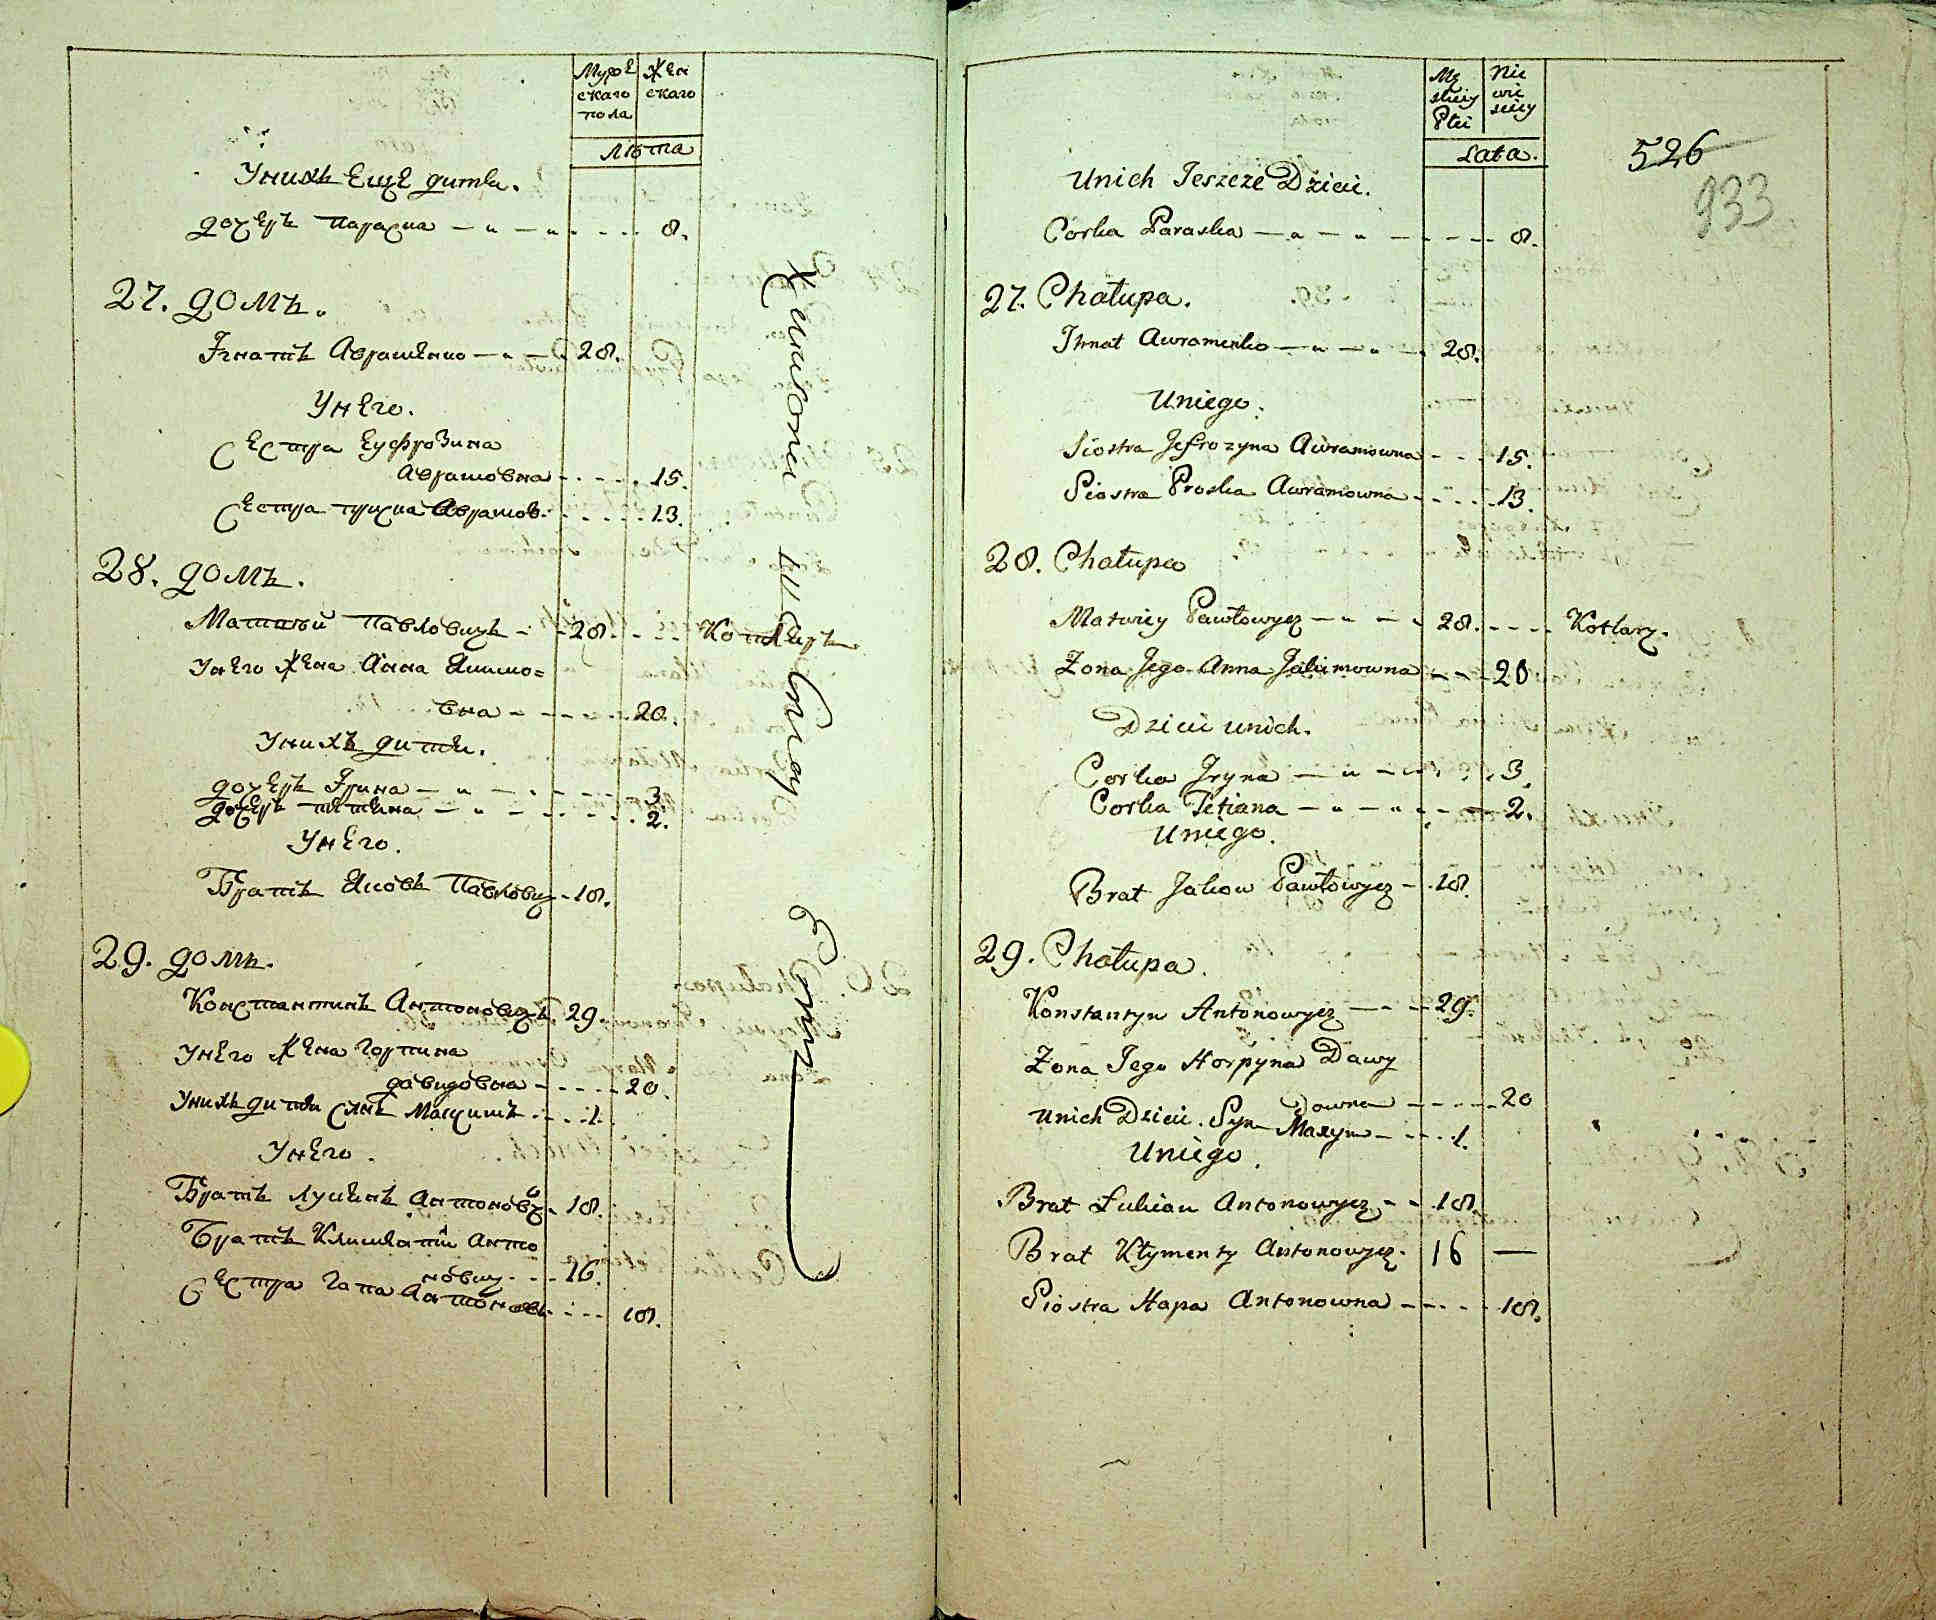 Мужескаго пола
Женскаго
Лѣта
Унихъ Еще дитѣи.
дочеръ параска — 8.
27. домъ.
Ігнатъ Авраменко — 28.
Унего.
Сестра Еуфрозина
Аврамовна 15.
Сестра приска Аврамов. 13.
28. домъ.
Матвѣй Павловичъ — 28. Котлярь
Унего жена Анна Якимо=
вна 20.
Унихъ дитѣи.
дочеръ Ірина — 3.
дочеръ тетяна — 2.
Унего.
Братъ Яковъ Павлович 18.
29. домъ.
Константинъ Антоновичъ. 29.
Унего жена горпина
давидовна 20.
Унихъ дитѣи синъ Маѯимъ 1.
Унего.
Братъ лукянъ Антоновч 18.
Братъ Климатій Анто
нович 16.
Сестра гапа Антоновн. 18.
Męskiey Płci
Niewieściey
Lata.
526
933
Unich Jeszcze Dzieci.
Corka Paraska — 8.
27. Chałupa.
Ihnat Awramenko — 28.
Uniego.
Siostra Jefrozyna Awramowna 15.
Siostra Proska Awramowna 13.
28. Chałupa
Matwiey Pawłowycz — 28. Kotlarz.
Zona Jego Anna Jakimowna 20
Dzieci unich.
Corka Iryna — 3.
Corka Tetiana — 2.
Uniego.
Brat Jakow Pawłowycz — 18.
29. Chałupa.
Konstantyn Antonowycz — 29.
Zona Jego Horpyna Dawy
downa 20
Unich Dzieci. Syn Maxym 1.
Uniego.
Brat Łukian Antonowycz 18.
Brat Kłymenty Antonowycz. 16 —
Siostra Hapa Antonowna 18.